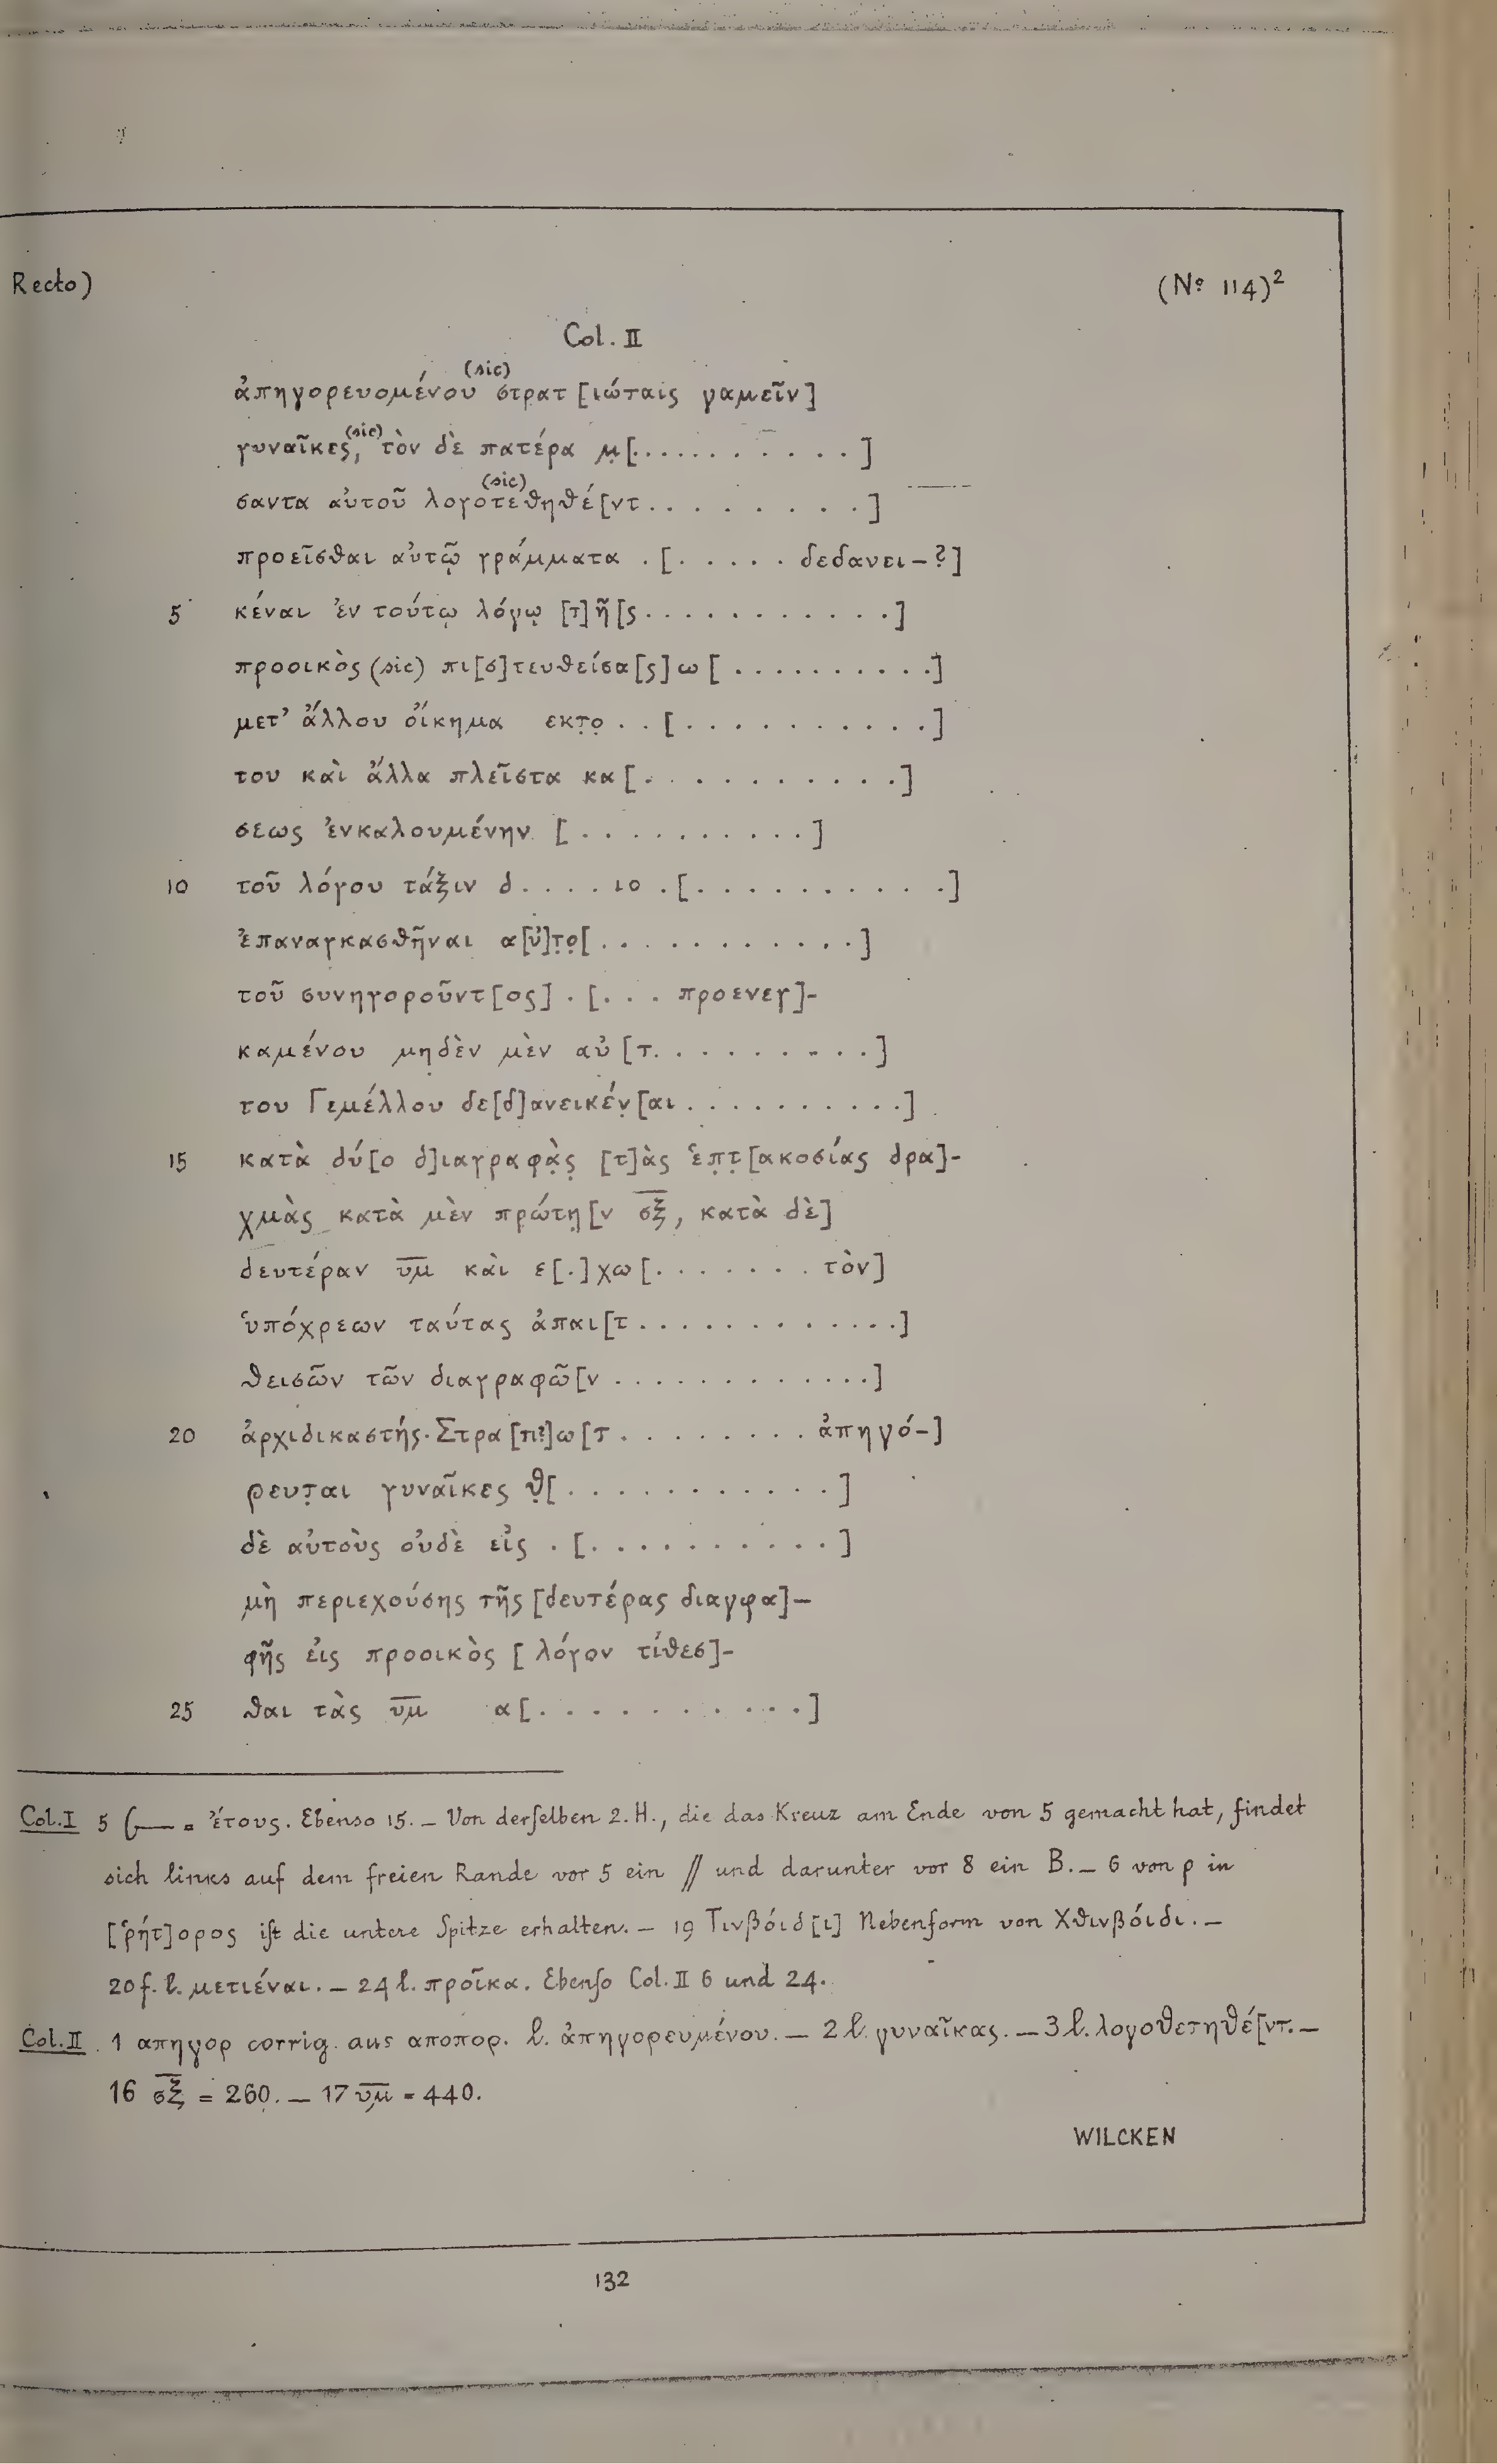 Recto)
(No 114)²
Col. II
(sic)
ἀπηγορευομένου στρατ[ιώταις γαμεῖν]
(sic)
γυναῖκες, τὸν δὲ πατέρα μ̣[. . . . . . . . . . .]
(sic)
σαντα αὐτοῦ λογοτεθηθέ[ντ . . . . . . . . .]
προεῖσθαι αὐτῷ γράμματα . [. . . . . δεδανει-?]
5 κέναι ἐν τούτῳ λόγῳ [τ]ῆ[ς . . . . . . . . . . .]
προοικὸς (sic) πι[σ]τευθείσα[ς] ω [ . . . . . . . . . .]
μετ' ἄλλου οἴκημα εκτ̣ο̣ . . [. . . . . . . . . . .]
του καὶ ἄλλα πλεῖστα κα[. . . . . . . . . . .]
σεως ἐνκαλουμένην [. . . . . . . . . .]
10 τοῦ λόγου τάξιν δ . . . . ιο . [. . . . . . . . . . .]
ἐπαναγκασθῆναι α[ὐ]τ̣ο̣[. . . . . . . . . . .]
τοῦ συνηγοροῦντ[ος] . [. . . προενεγ]-
καμένου μηδὲν μὲν αὐ[τ. . . . . . . . . .]
του Γεμέλλου δε[δ]ανεικέν̣[αι . . . . . . . . . .]
15 κατὰ δύ[ο δ]ιαγραφὰ̣ς̣ [τ]ὰς ἑπ̣τ̣[ακοσίας δρα]-
χμὰς κατὰ μὲν πρώτη̣[ν σ̅ξ̅, κατὰ δὲ]
δευτέραν υ̅μ̅ καὶ ε[.]χω[. . . . . . . τὸν]
ὑπόχρεων ταύτας ἀπαι[τ . . . . . . . . . . . .]
θεισῶν τῶν διαγραφῶ[ν . . . . . . . . . . . .]
20 ἀρχιδικαστής. Στρα[πι?]ω[τ . . . . . . . . ἀπηγό-]
ρευτ̣αι γυναῖκες θ̣[. . . . . . . . . . .]
δὲ αὐτοὺς οὐδὲ εἷς . [. . . . . . . . . .]
μὴ περιεχούσης τῆς [δευτέρας διαγρα]-
φῆς εἰς προοικὸς [λόγον τίθεσ]-
25 θαι τὰς υ̅μ̅ α[. . . . . . . . . . .]
Col. I 5 = ἔτους. Ebenso 15. – Von derselben 2. H., die das Kreuz am Ende von 5 gemacht hat, findet
sich links auf dem freien Rande vor 5 ein // und darunter vor 8 ein B. – 6 von ρ in
[ῥήτ]ορος ist die untere Spitze erhalten. – 19 Τινβόιδ[ι] Nebenform von Χθινβόιδι. –
20 f. l. μετιέναι. – 24 l. προῖκα. Ebenso Col. II 6 und 24.
Col. II 1 απηγορ corrig. aus αποπορ. l. ἀπηγορευμένου. – 2 l. γυναῖκας. – 3 l. λογοθετηθέ[ντ. –
16 σ̅ξ̅ = 260. – 17 υ̅μ̅ = 440.
WILCKEN
132